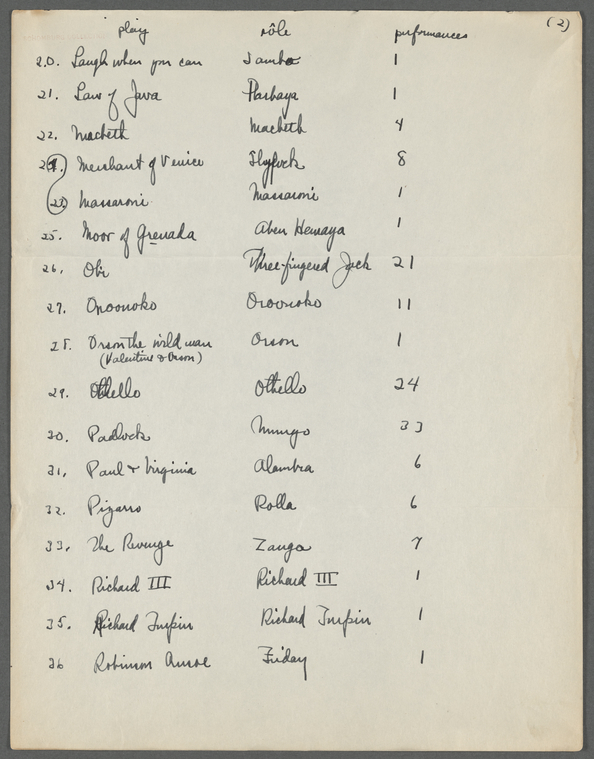 (2)
play rôle performances
20. Laugh when you can Sambo 1
21. Law of Java Parbaya 1
22. Macbeth Macbeth 4
24. Merchant of Venice Shylock 8
23. Massaroni Massaroni 1
25. Moor of Grenada Aben Hemaya 1
26. Obi Three-fingered Jack 21
27. Oroonoko Oroonoko 11
28. Orson the wild man Orson 1
(Valentine & Orson)
29. Othello Othello 24
30. Padlock Mungo 33
31. Paul & Virginia Alambra 6
32. Pizarro Rolla 6
33. The Revenge Zanga 7
34. Richard III Richard III 1
35. Richard Turpin Richard Turpin 1
36 Robinson Crusoe Friday 1